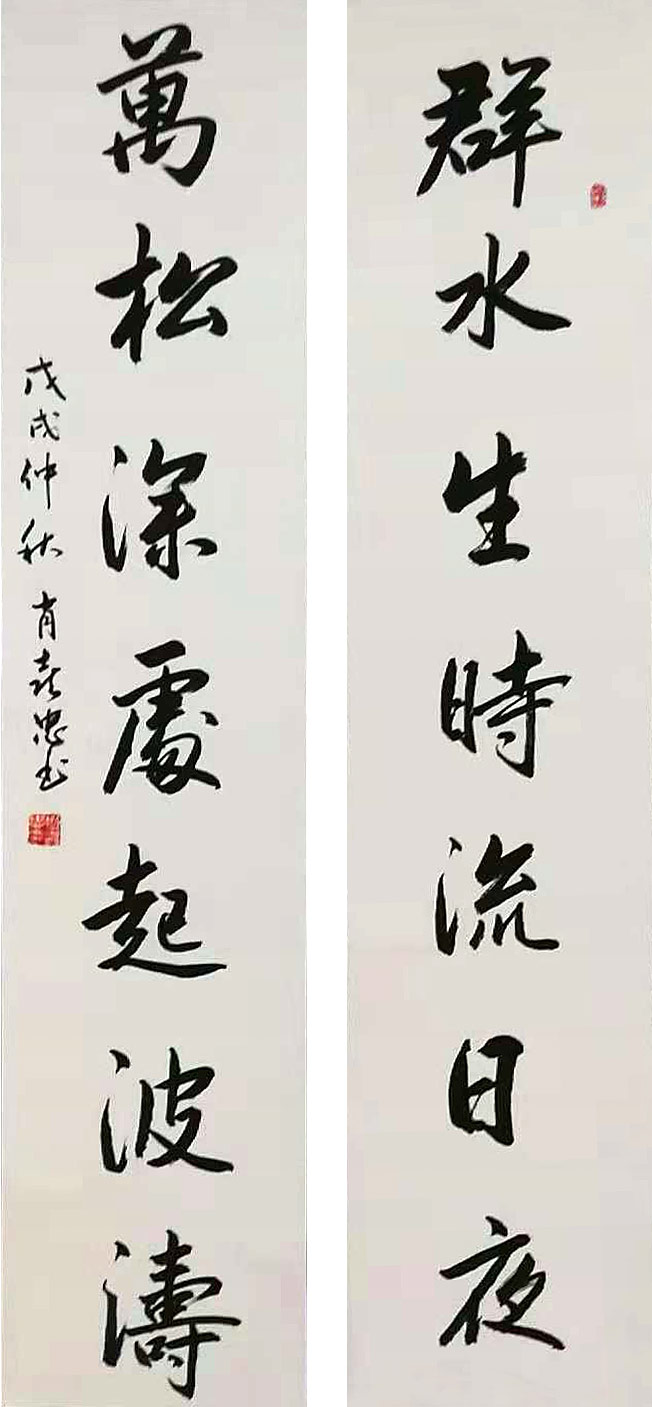 群水生時流日夜
萬松深處起波濤
戊戌仲秋 肖喜忠书